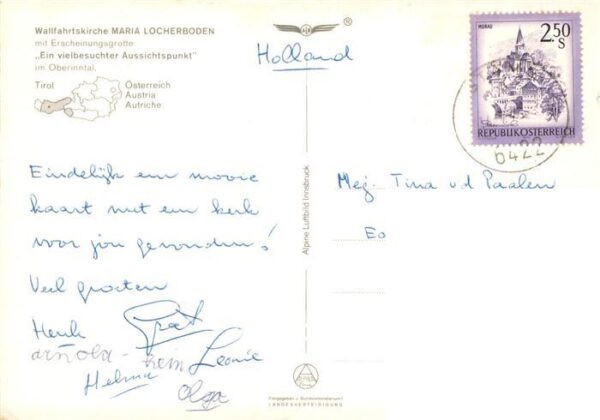 Wallfahrtskirche MARIA LOCHERBODEN
mit Erscheinungsgrotte
„Ein vielbesuchter Aussichtspunkt"
im Oberinntal.
Tirol
Österreich
Austria
Autriche
Holland
MURAU
2.50
S
REPUBLIK ÖSTERREICH
6422
Eindelijk een mooie
kaart met een kerk
voor jou gevonden!
Veel groeten
Henk
Arnold - Hein Leonie
Helma
Olga
Alpine Luftbild Innsbruck
Mej. Tina vd Paalen
Eo
Freigegeben v. Bundesministerium f.
LANDESVERTEIDIGUNG